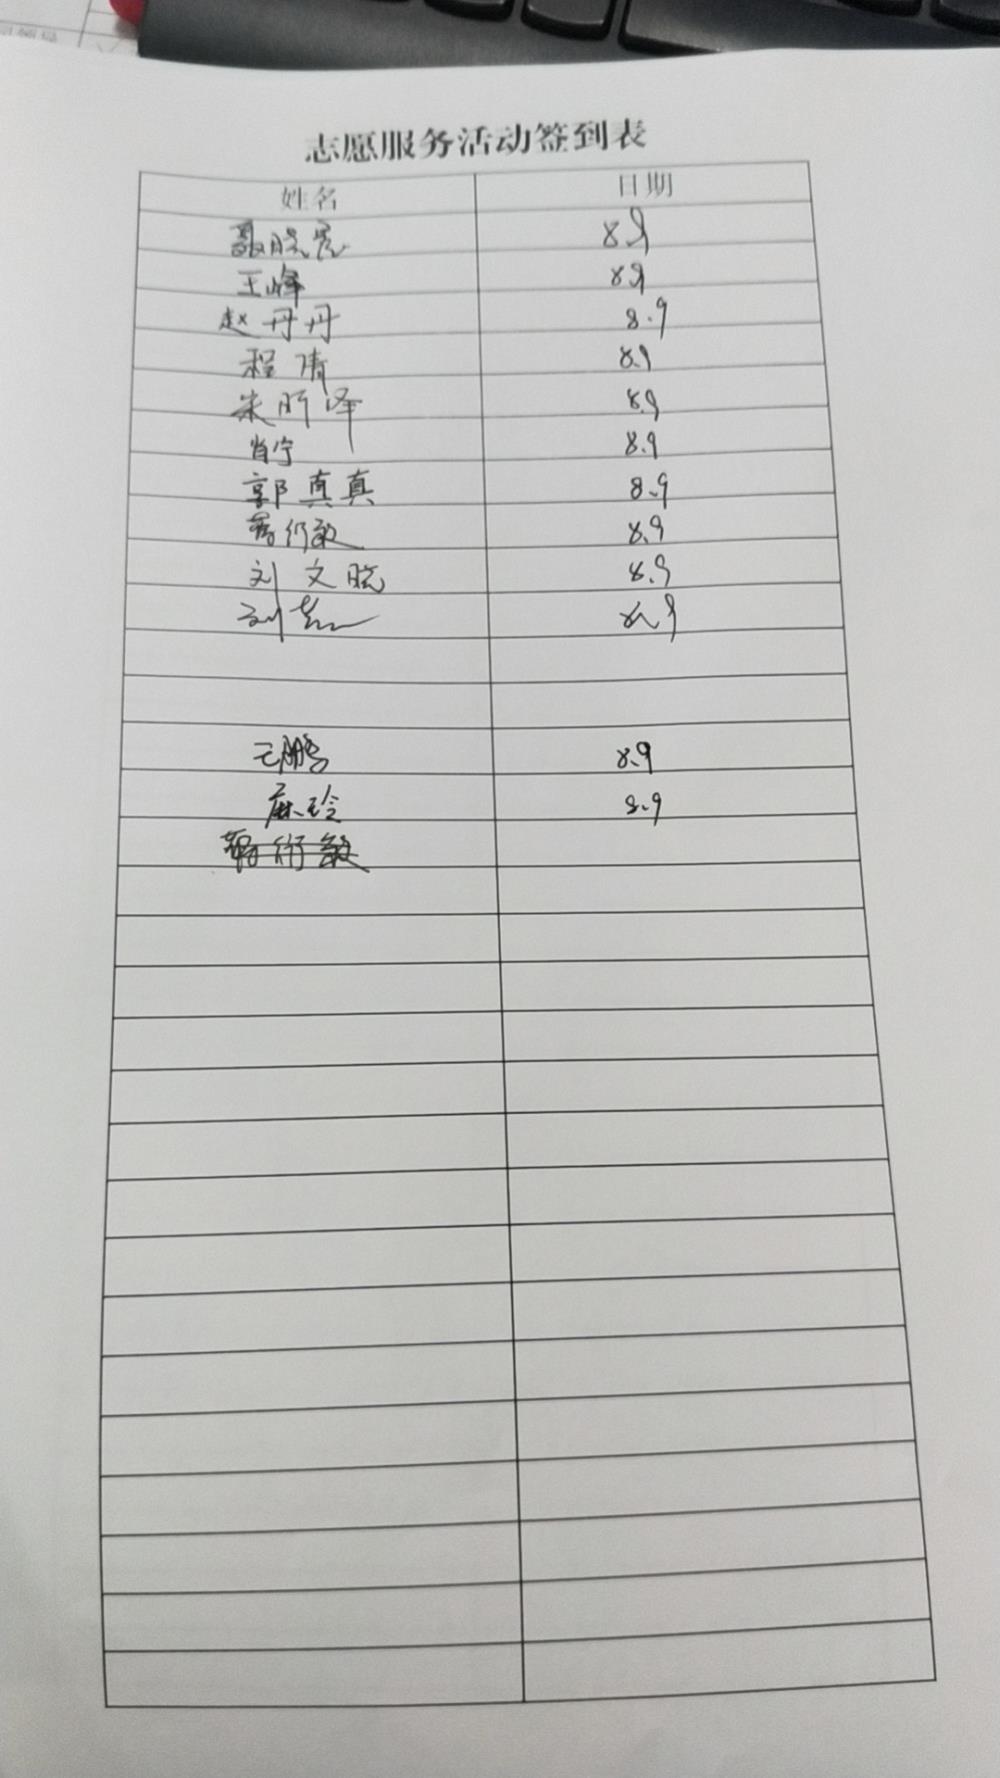 志愿服务活动签到表
姓名 日期
晓 8.9
王峰 8.9
赵丹丹 8.9
程倩 8.9
朱昕泽 8.9
肖宁 8.9
郭真真 8.9
蒋衍敏 8.9
刘文晓 8.9
刘 8.9
王鹏 8.9
麻玲 8.9
蒋衍敏